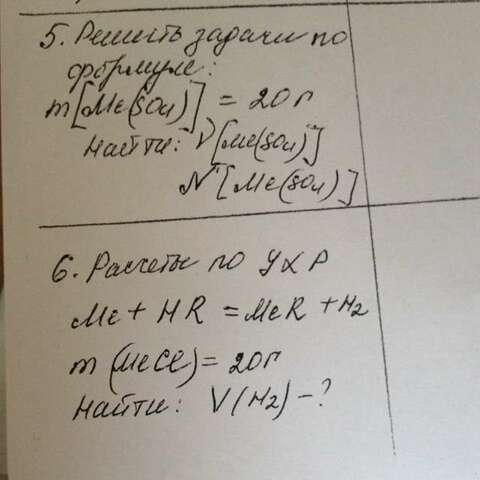 5. Решить задачи по
формуле:
m[Me(SO4)] = 20г
Найти: V[Me(SO4)]
N[Me(SO4)]
6. Расчеты по УХР
Me + HR = MeR + H2
m(MeCl) = 20г
Найти: V(H2) - ?